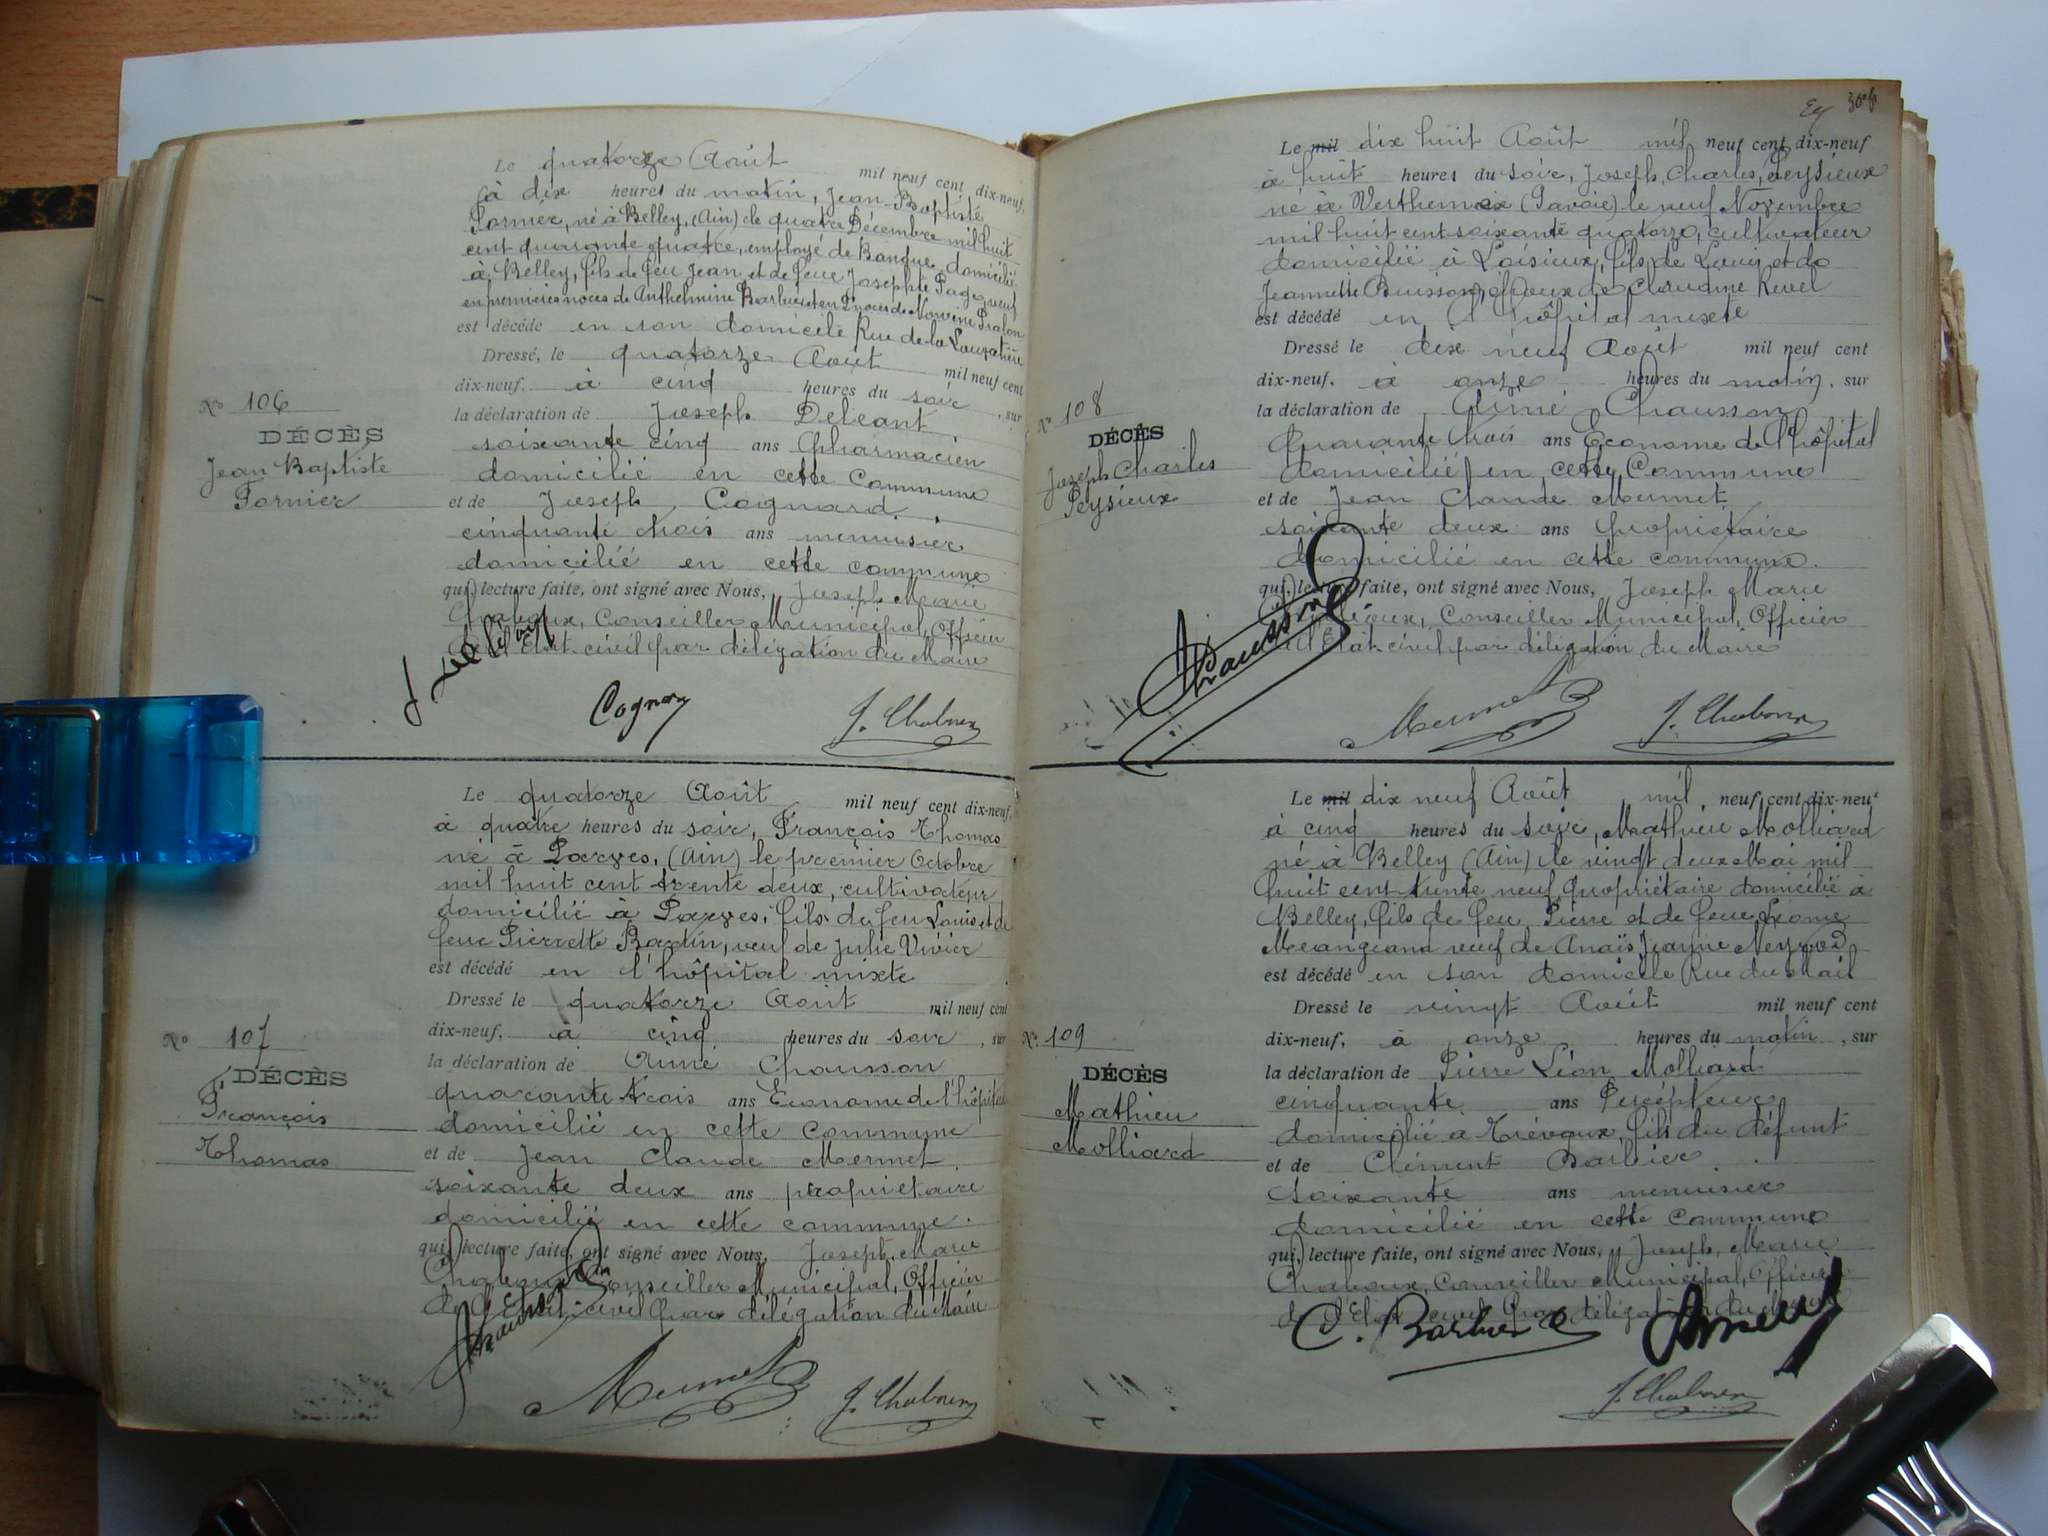 Le quatorze Août mil neuf cent dix-neuf,
à dix heures du matin, Jean-Baptiste
Fornier, né à Belley, (Ain) le quatre Décembre mil huit
cent quarante quatre, employé de Banque domicilié
à Belley, fils de feu Jean et de feue Josephte Page veuf
en premières noces de Anthelmine Barbier et en 2 noces de
est décédé en son domicile Rue de la
Dressé, le quatorze Août mil neuf cent
dix-neuf, à cinq heures du soir, sur
la déclaration de Joseph
soixante cinq ans Pharmacien
domicilié en cette Commune
et de Joseph Cognard.
cinquante trois ans menuisier
domicilié en cette commune
qui, lecture faite, ont signé avec Nous, Joseph Marie
Chaboux, Conseiller Municipal, Officier
de l'Etat-civil par délégation du Maire
Cognard
J. Chaboux
No 106
DÉCÈS
Jean Baptiste
Fornier
Le quatorze Août mil neuf cent dix-neuf,
à quatre heures du soir, François Thomas
né à Parves, (Ain) le premier Octobre
mil huit cent trente deux, cultivateur
domicilié à Parves, fils de feu Louis et de
feue Pierrette Bardin, veuf de Julie Vivier
est décédé en l'hôpital mixte
Dressé le quatorze Août mil neuf cent
dix-neuf, à cinq heures du soir, sur
la déclaration de Aimé Chausson
quarante trois ans Econome de l'hôpital
domicilié en cette commune
et de Jean Claude Mermet.
soixante deux ans propriétaire
domicilié en cette commune.
qui, lecture faite, ont signé avec Nous, Joseph Marie
Chaboux Conseiller Municipal, Officier
de l'Etat-civil par délégation du Maire
Chausson
Mermet
J. Chaboux
No 107
DÉCÈS
François
Thomas
Le mil dix huit Août mil neuf cent dix-neuf
à huit heures du soir, Joseph, Charles, Peysieux
né à Verthemex (Savoie) le neuf Novembre
mil huit cent soixante quatorze, cultivateur
domicilié à Loisieux, fils de et de
Jeannette Buisson, époux de Claudine Revel
est décédé en l'hôpital mixte
Dressé le dix neuf Août mil neuf cent
dix-neuf, à onze heures du matin, sur
la déclaration de Aimé Chausson
Quarante trois ans Econome de l'hôpital
domicilié en cette Commune
et de Jean Claude Mermet
soixante deux ans propriétaire
domicilié en cette commune.
qui, lecture faite, ont signé avec Nous, Joseph Marie
Chaboux, Conseiller Municipal, Officier
de l'Etat-civil par délégation du Maire
Chausson
Mermet
J. Chaboux
No 108
DÉCÈS
Joseph Charles
Peysieux
Le mil dix neuf Août mil neuf cent dix-neuf
à cinq heures du soir, Mathieu Molliard
né à Belley (Ain) le vingt deux Mai mil
huit cent trente neuf, propriétaire domicilié à
Belley, fils de feu Pierre et de feue
veuf de Anaïs Jeanne
est décédé en son domicile Rue du Mail
Dressé le vingt Août mil neuf cent
dix-neuf, à onze heures du matin, sur
la déclaration de Pierre Léon Molliard
cinquante ans Percepteur
domicilié à Trévoux, fils du défunt
et de Clément Barbier.
Soixante ans menuisier
domicilié en cette commune
qui, lecture faite, ont signé avec Nous, Joseph, Marie
Chaboux, Conseiller Municipal, Officier
de l'Etat-civil par délégation du Maire
C. Barbier
J. Chaboux
No 109
DÉCÈS
Mathieu
Molliard